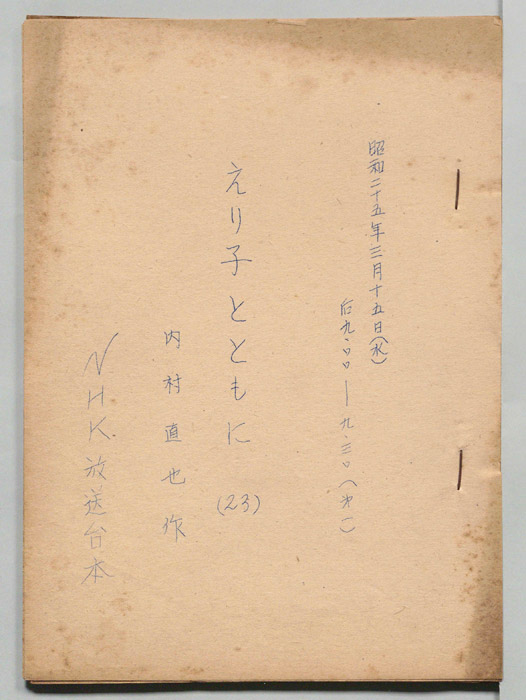 昭和二十五年三月十五日(水)
后九・〇〇―九・三〇(第一)
えり子とともに
(23)
内村直也作
NHK.放送台本